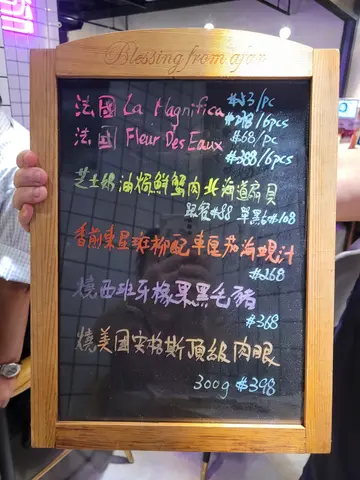 Blessing from ajar
法國 La Magnifica $53/pc
$298/6pcs
法国 Fleur Des Eaux $68/pc
$388/6pcs
芝士焗油焗鮮蟹肉北海道扇貝
跟餐$88 單點$108
香煎東星斑柳配車厘茄海蜆汁
$268
燒西班牙橡果黑毛豬
$368
燒美國安格斯頂級肉眼
300g $398